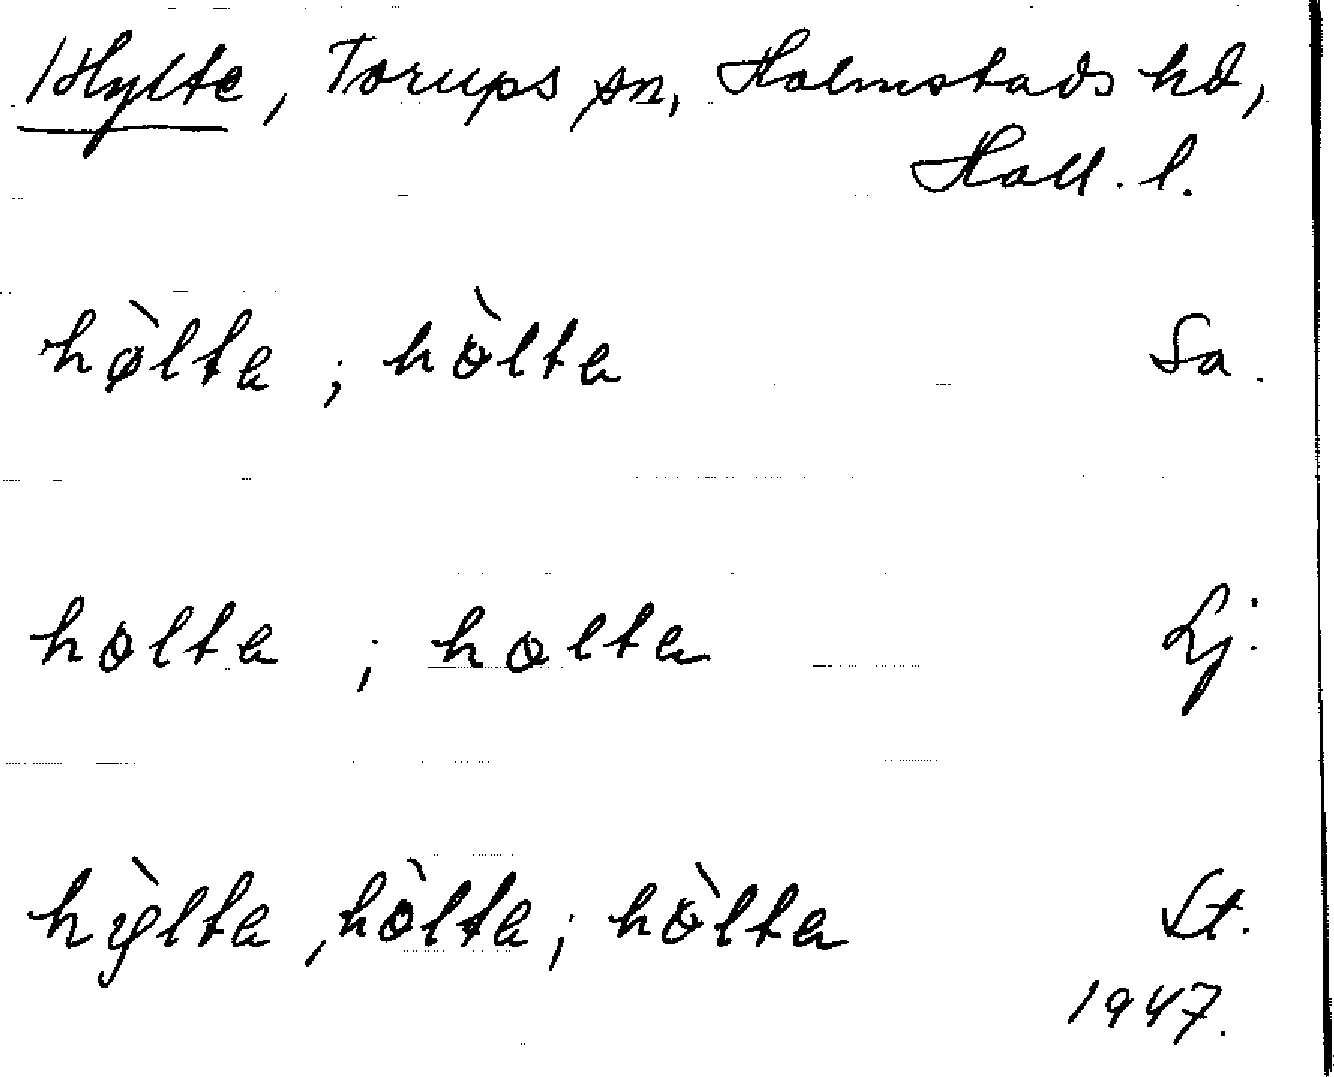 Hylte, Torups sn, Halmstads hd,
Hall. l.
hø̀lta ; hòlta Sa.
holta ; holta Lj.
hỳlta, hòlta ; hòlta St.
1947.